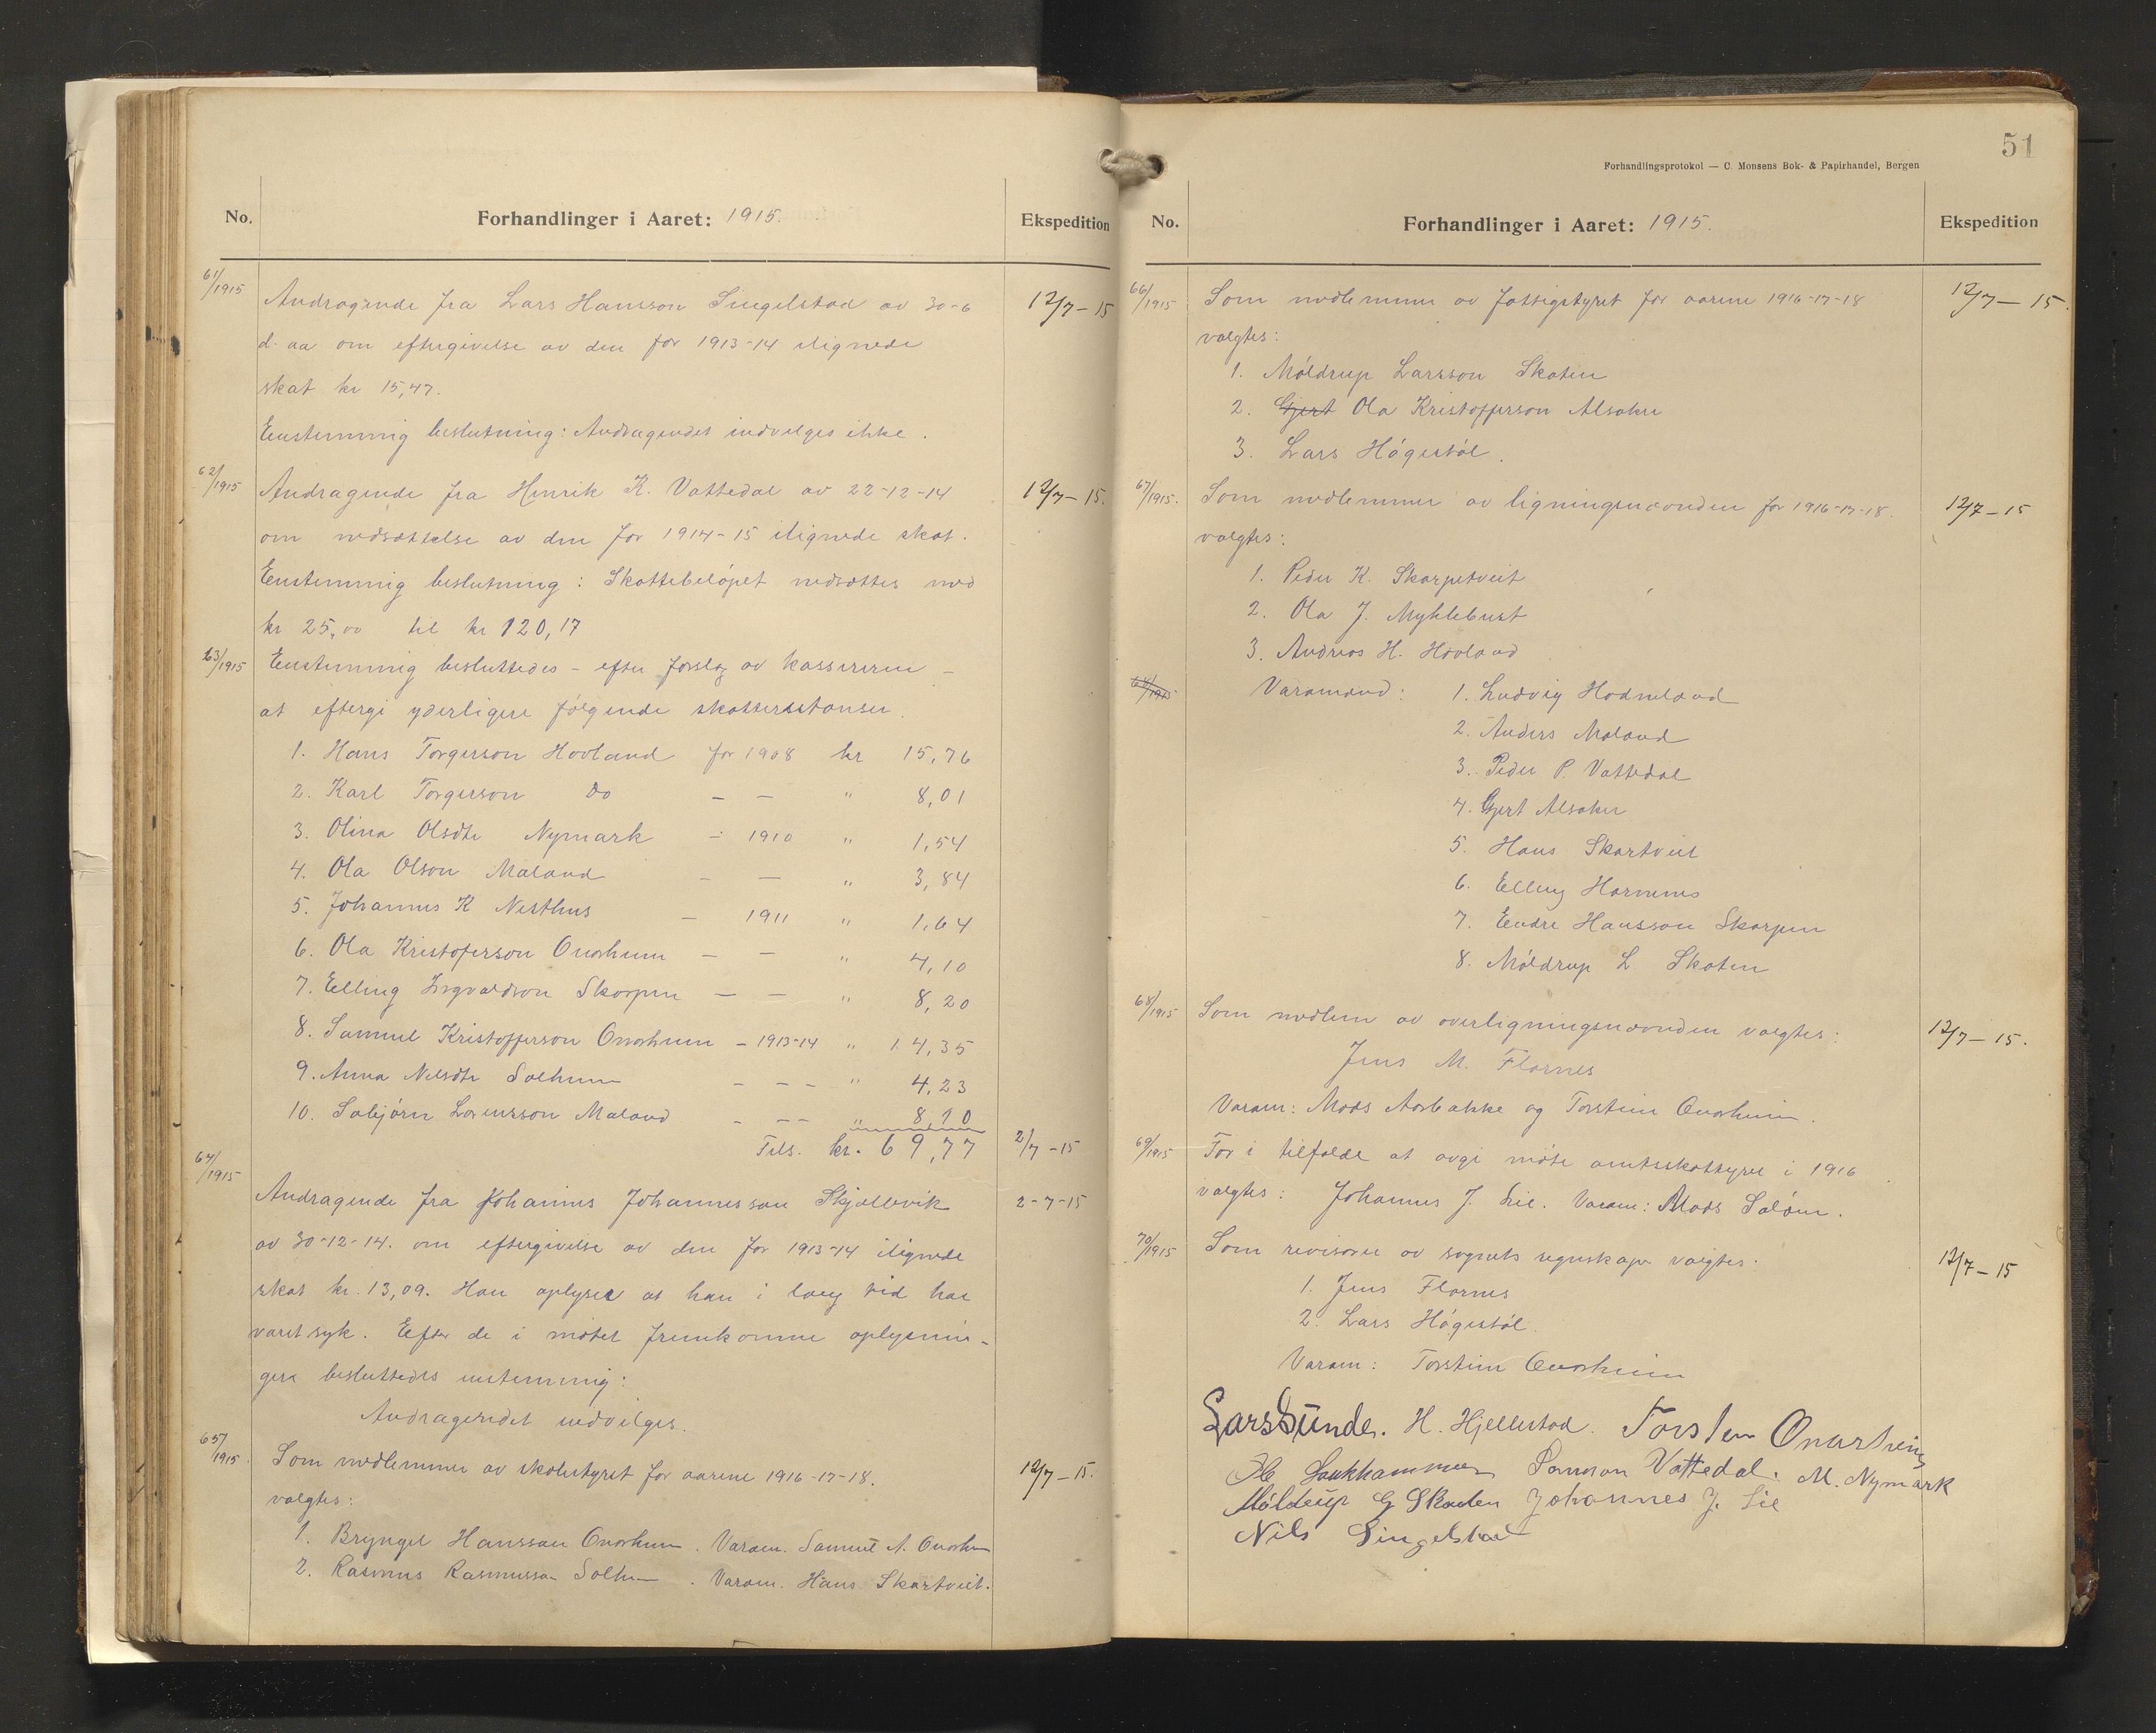 No. Forhandlinger i Aaret: 1915. Ekspedition
61/1915 Andragende fra Lars Hansson Singelstad av 30-6 12/7-15
d. aa om eftergivelse av den for 1913-14 ilignede
skat kr 15,47.
Enstemmig beslutning: Andragendet indvilges ikke.
62/1915 Andragende fra Henrik K. Vattedal av 22-12-14 12/7-15.
om nedsættelse av den for 1914-15 ilignede skat.
Enstemmig beslutning: Skattebeløpet nedsættes med
kr 25,00 til kr 120,17
63/1915 Enstemmig besluttedes - efter forslag av kassereren -
at eftergi yderligere følgende skatterestanser.
1. Hans Torgerson Hovland for 1908 kr 15,76
2. Karl Torgerson Do — — " 8,01
3. Olina Olsdtr Nymark - 1910 " 1,54
4. Ola Olson Maland - — " 3,84
5. Johannes K Nesthus — 1911 " 1,64
6. Ola Kristoferson Onarheim — — " 4,10
7. Elling Ingvaldson Skorpen — — " 8,20
8. Samuel Kristofferson Onarheim - 1913-14 " 14,35
9. Anna Nilsdtr Solheim - - - - " 4,23
10. Salbjørn Larensson Maland - -- " 8,10
Tils. kr. 69,77 2/7-15
64/1915
Andragende fra Johannes Johannesson Skjellevik 2-7-15
av 30-12-14. om eftergivelse av den for 1913-14 ilignede
skat kr. 13,09. Han oplyser at han i lang tid har
været syk. Efter de i møtet fremkomne oplysnin-
ger besluttedes enstemmig:
Andragendet indvilges.
65/1915 Som medlemmer av skolestyret for aarene 1916-17-18. 12/7-15.
valgtes:
1. Bryngel Hansson Onarheim. Varam. Samuel A. Onarheim
2. Rasmus Rasmusson Solheim. Varam. Hans Skartveit.
51
Forhandlingsprotokol — C. Monsens Bok- & Papirhandel, Bergen
No. Forhandlinger i Aaret: 1915. Ekspedition
66/1915 Som medlemmer av fattigstyret for aarene 1916-17-18 12/7-15.
valgtes:
1. Møldrup Larsson Skaten
2. Gjert Ola Kristofferson Alsaker
3. Lars Høgestøl.
67/1915. Som medlemmer av ligningsnævnden for 1916-17-18. 12/7-15
valgtes:
1. Peder K. Skarpetveit
2. Ola J. Myklebust
3. Andreas H. Hovland
68/1915 Varamænd: 1. Ludvig Hodneland
2. Anders Maland
3. Peder P. Vattedal
4. Gjert Alsaker
5. Hans Skartveit
6. Elling Hornenes
7. Endre Hansson Skorpen
8. Møldrup L. Skaten
68/1915 Som medlem av overligningsnævnden valgtes: 12/7-15.
Jens M. Flornes
Varam: Mads Aarbakke og Torstein Onarheim.
69/1915 For i tilfælde at avgi møte amtsskattyre i 1916
valgtes: Johannes J. Lie. Varam: Mads Saløen.
70/1915 Som revisorer av sognets regnskaper valgtes. 12/7-15
1. Jens Flornes
2. Lars Høgestøl.
Varam: Torstein Onarheim
Lars Sunde. H. Hjellestad. Torsten Onarheim
Samson Vattedal. M. Nymark
Møldrup G Skaten Johannes J. Lie
Nils Singelstad